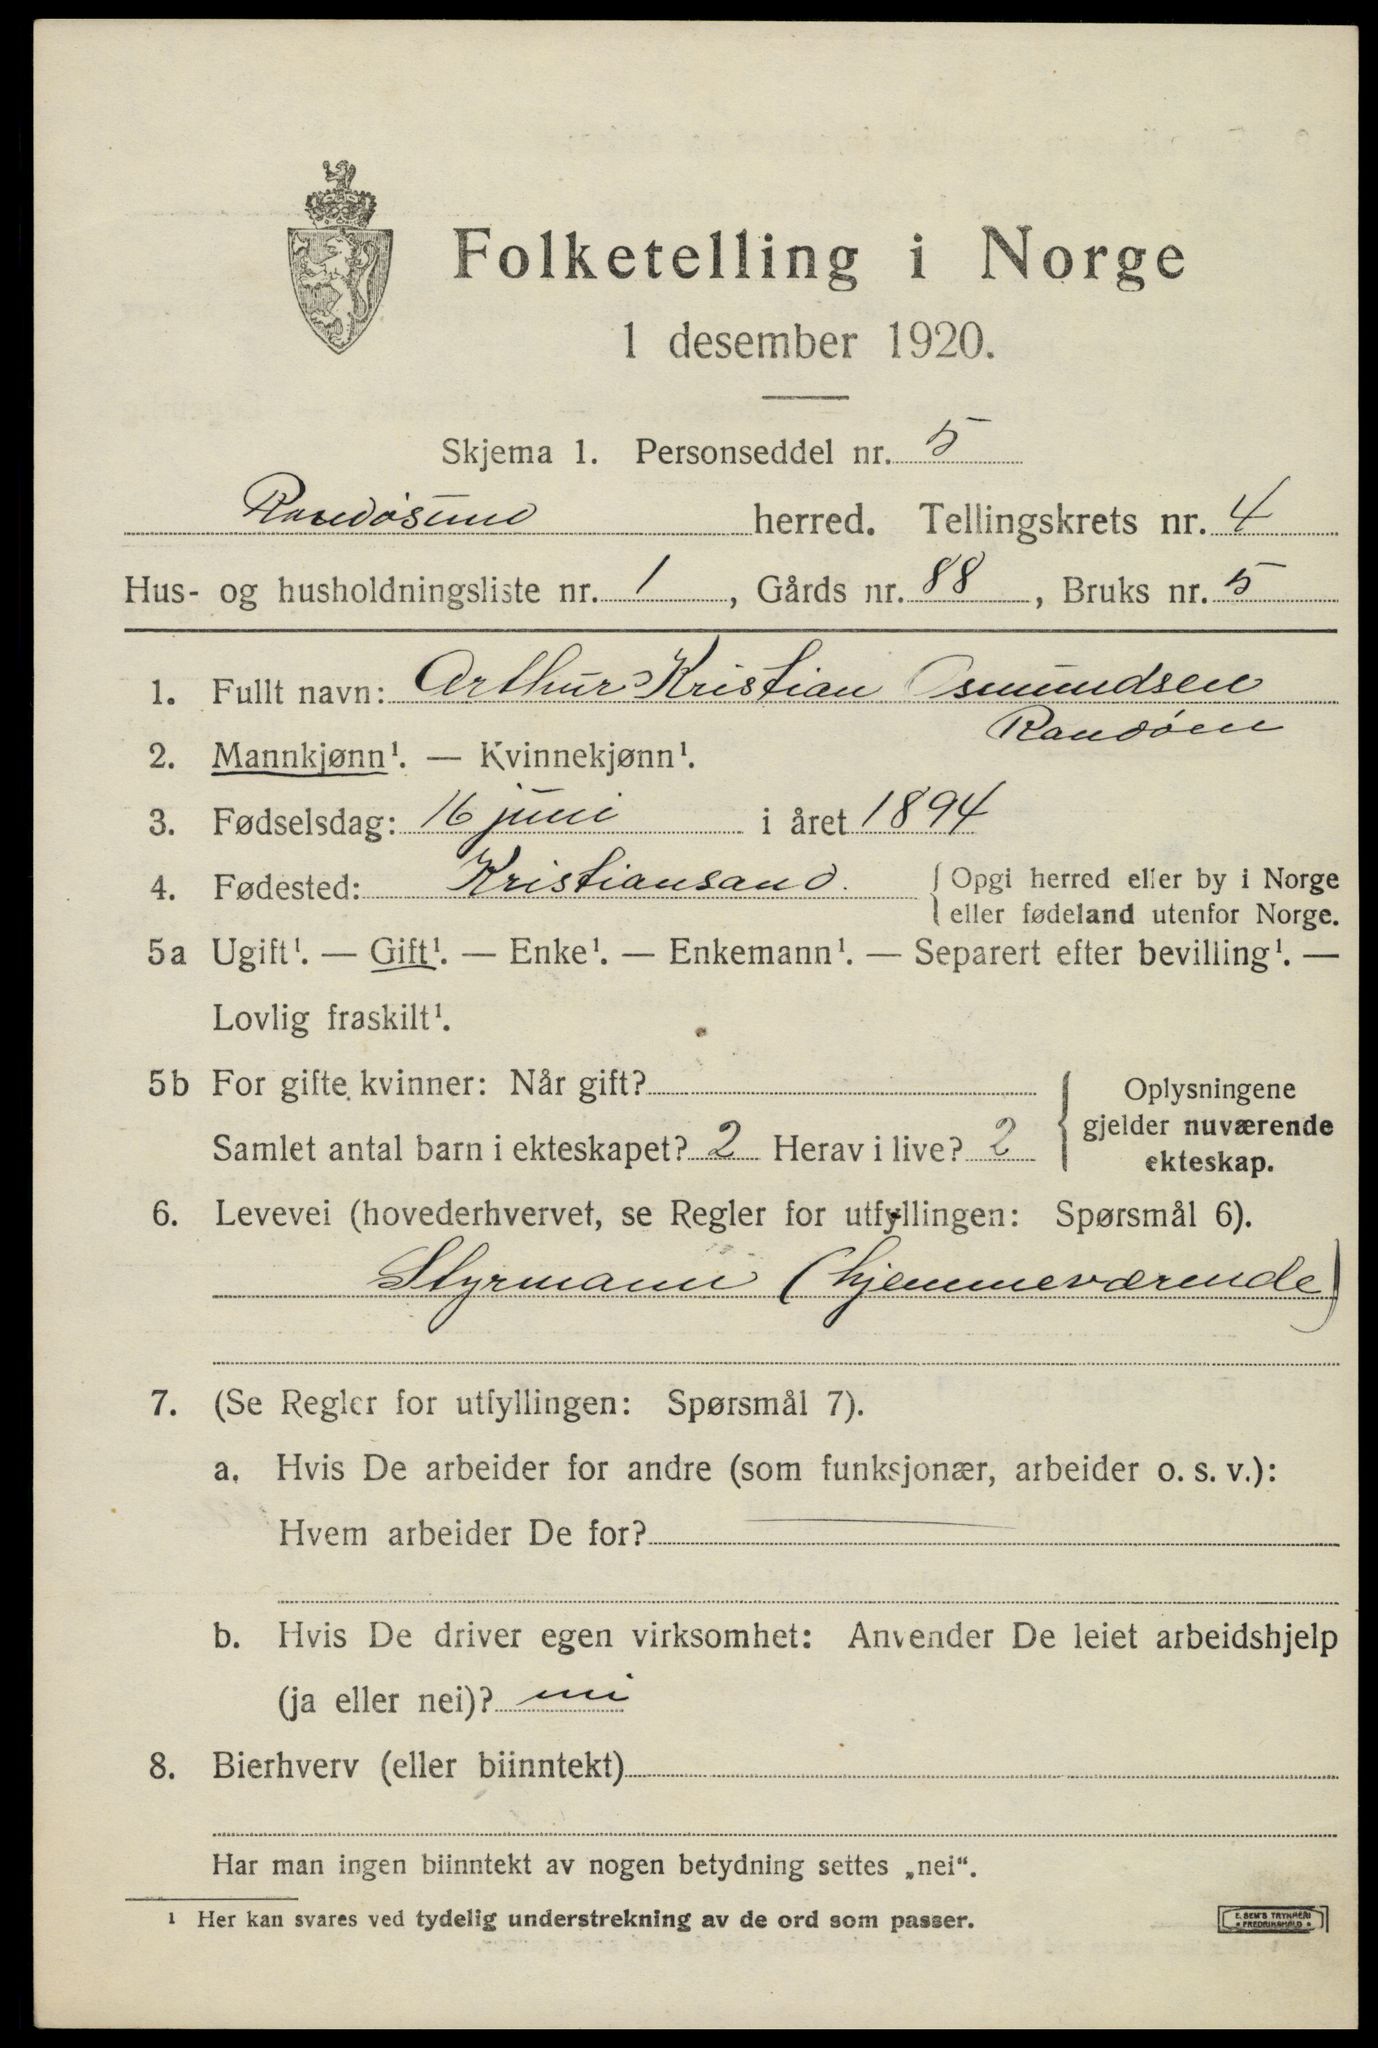 Folketelling i Norge
1 desember 1920.
Skjema 1. Personseddel nr. 5
Randøsund herred. Tellingskrets nr. 4
Hus- og husholdningsliste nr. 1, Gårds nr. 88, Bruks nr. 5
1. Fullt navn: Arthur Kristian Osmundsen
Randøen
2. Mannkjønn¹. — Kvinnekjønn¹.
3. Fødselsdag: 16 juni i året 1894
4. Fødested: Kristiansand. { Opgi herred eller by i Norge
eller fødeland utenfor Norge.
5a Ugift¹. — Gift¹. — Enke¹. — Enkemann¹. — Separert efter bevilling¹. —
Lovlig fraskilt¹.
5b For gifte kvinner: Når gift?
Samlet antal barn i ekteskapet? 2 Herav i live? 2
Oplysningene
gjelder nuværende
ekteskap.
6. Levevei (hovederhvervet, se Regler for utfyllingen: Spørsmål 6).
Styrmann (hjemmeværende)
7. (Se Regler for utfyllingen: Spørsmål 7).
a. Hvis De arbeider for andre (som funksjonær, arbeider o. s. v.):
Hvem arbeider De for? —
b. Hvis De driver egen virksomhet: Anvender De leiet arbeidshjelp
(ja eller nei)? nei
8. Bierhverv (eller biinntekt)
Har man ingen biinntekt av nogen betydning settes „nei“.
¹ Her kan svares ved tydelig understrekning av de ord som passer.
E. SEM'S TRYKKERI
• FREDRIKSHALD •